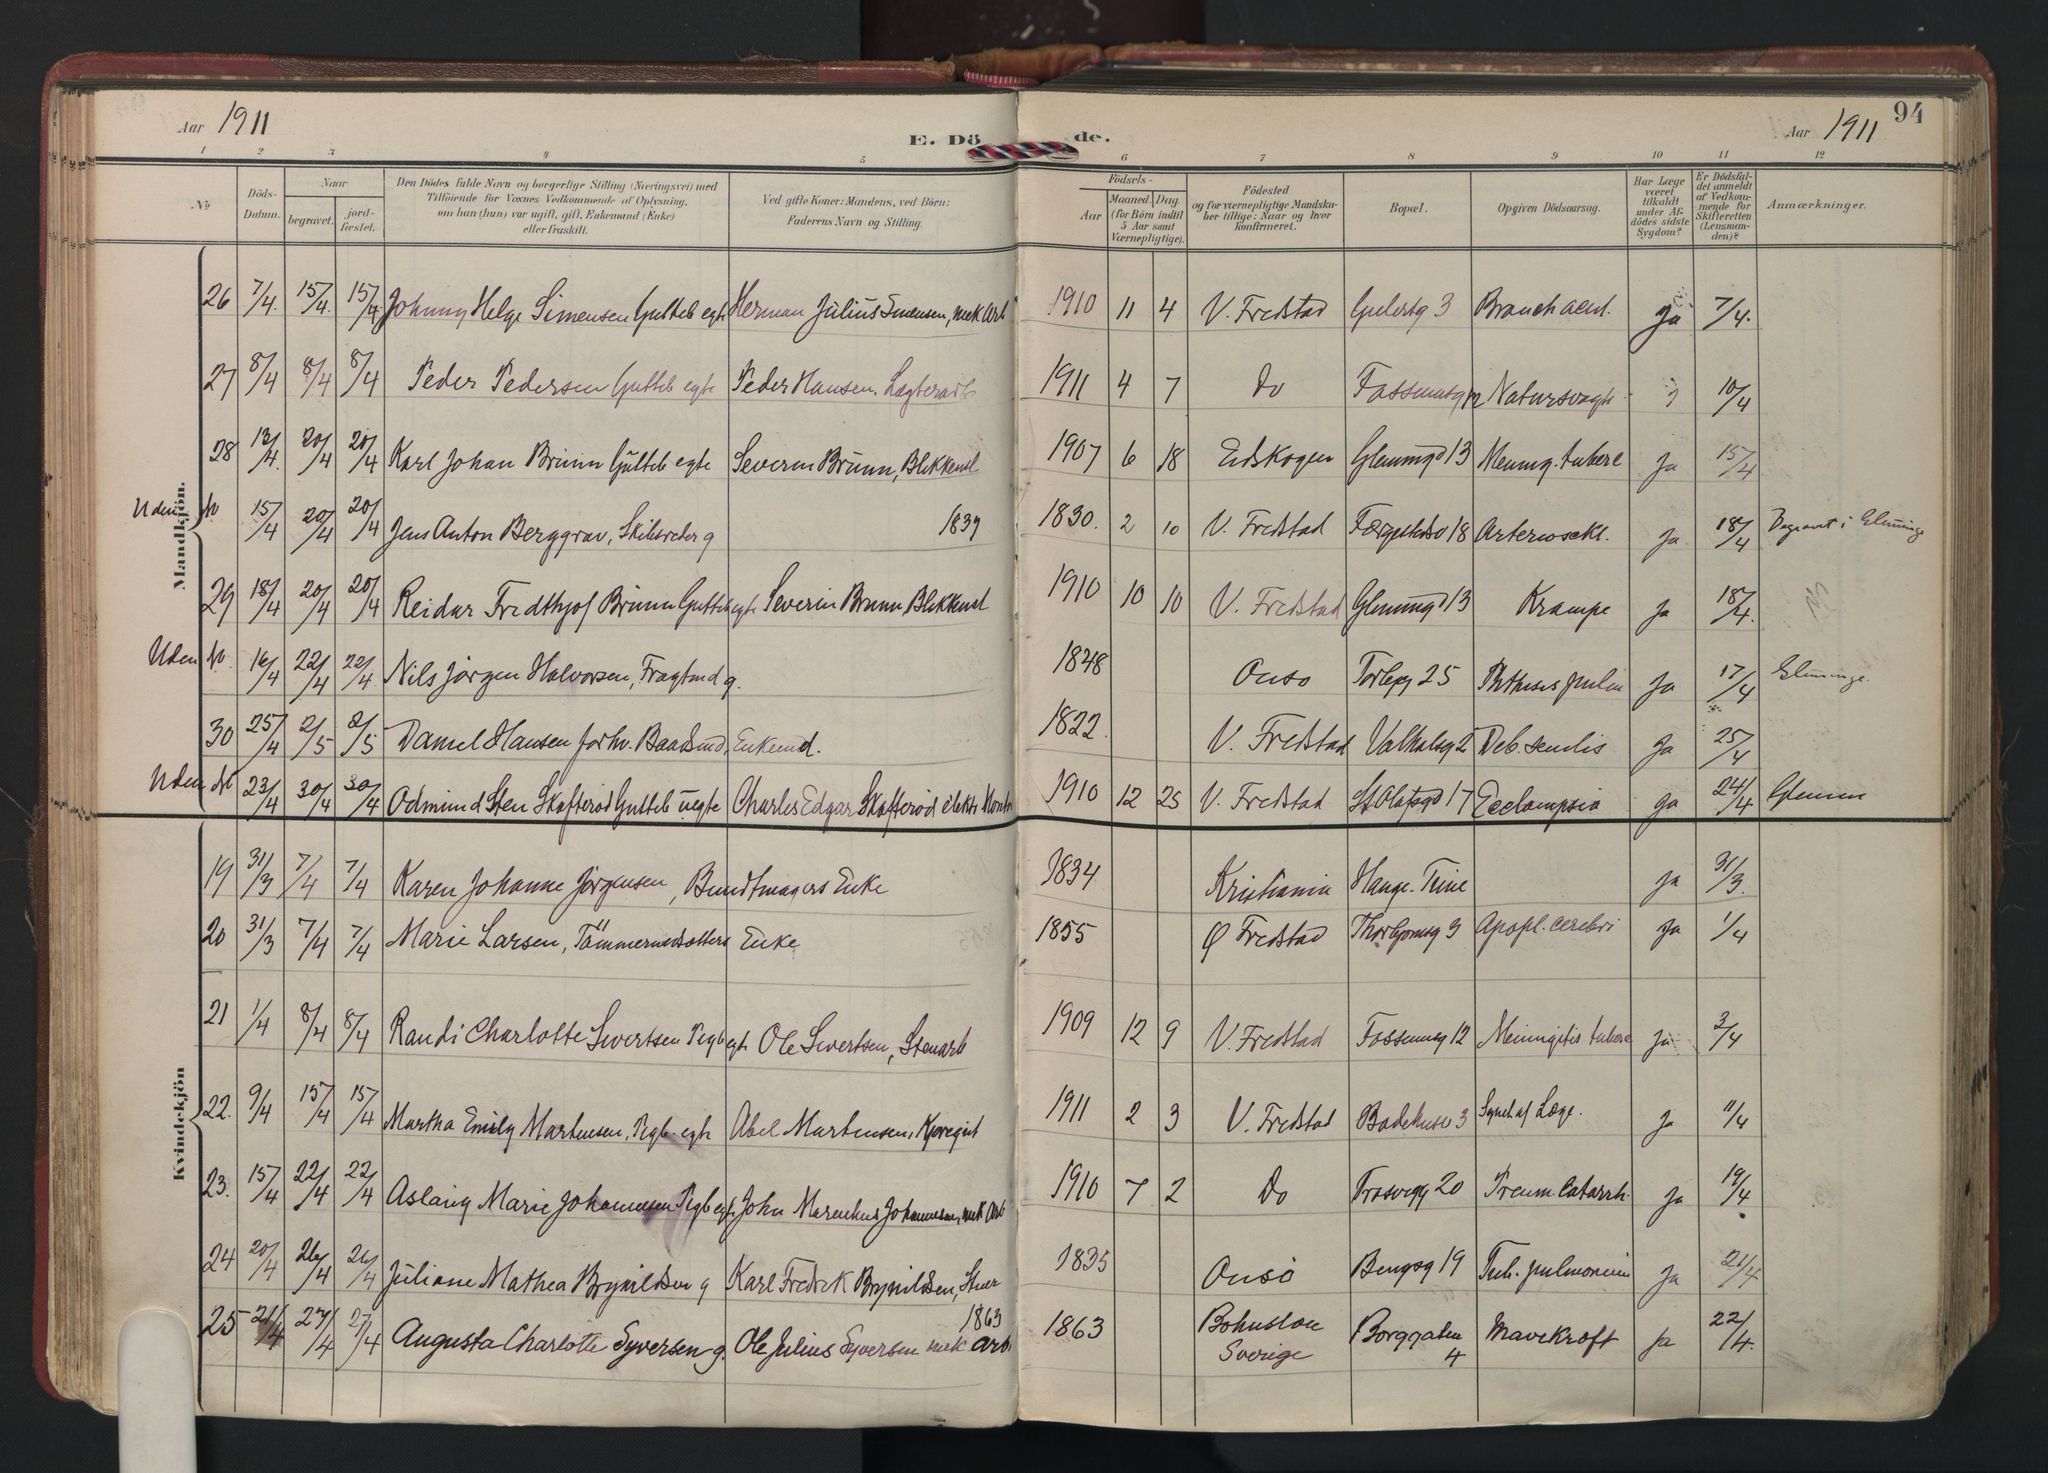 Aar 1911
E. Dö de.
94
Aar 1911
1 2 3 4 5 6 7 8 9 10 11 12
No
Döds-Datum.
Naar
begravet.
jord-fæstet.
Den Dödes fulde Navn og borgerlige Stilling (Næringsvei) med
Tilföiende for Voxnes Vedkommende af Oplysning,
om han (hun) var ugift, gift, Enkemand (Enke)
eller fraskilt.
Ved gifte Koner: Mandens, ved Börn:
Faderens Navn og Stilling.
Födsels-
Aar
Maaned. Dag.
(for Börn indtil
5 Aar samt
Værnepligtige).
Födested
og for værnepligtige Mandska-
ber tillige: Naar og hvor
konfirmeret.
Bopæl.
Opgiven Dödsaarsag.
Har Læge
været
tilkaldt
under Af-
dödes sidste
Sygdom?
Er Dödsfal-
det anmeldt
af Vedkom-
mende for
Skifteretten
(Lensman-
den)?
Anmærkninger.
Mandkjön.
26 7/4. 15/4. 15/4. Johnny Helge Simensen Gutteb egte Herman Julius Simensen, mek Arb 1910 11 4 V. Fredstad 3 Bronch acut. Ja 7/4.
27 8/4 8/4 8/4 Peder Pedersen Gutteb egte Peder Hansen. 1911 4 7 Do Natursvagh. 10/4
28 13/4. 20/4 20/4 Karl Johan Brunn Gutteb egte Severin Brunn, Blikkensl 1907 6 18 Eidskogen Glemmgd 13 Mening. tuberc Ja 15/4
Uden No 15/4 20/4 20/4 Jens Anton Berggrav, Skibsreder g 1839 1830. 2 10 V. Fredstad 18 Arteriosckl. Ja 18/4 Begravet i Glemminge
29 18/4 20/4 20/4 Reidar Fredthjof Brunn Gutteb egte Severin Brunn, Blikkensl 1910 10 10 V. Fredstad Glemmgd 13 Krampe Ja 18/4.
Uden No. 16/4 22/4 22/4 Nils Jörgen Halvorsen, Fragtmd g. 1848 Onsö Torleg 25 Phthisis pulm Ja 17/4 Glemminge.
30 25/4 2/5 2/5 Daniel Hansen forhv. Baadsmd, Enkemd. 1822. V. Fredstad Valhalsg 2 Deb. senilis Ja 25/4
Uden No 23/4 30/4 30/4 Odmund Sten Skofteröd Gutteb uegte Charles Edgar Skofteröd elektr Montr 1910 12 25 V. Fredstad St Olafsgd 17 Ecclampsia Ja 24/4 Glemm
Kvindekjön
19 31/3 7/4 7/4 Karen Johanne Jörgensen, Bundtmagers Enke 1834 Kristiania Hauge. Ja 31/3.
20 31/3 7/4 7/4 Marie Larsen, Enke 1855 Ø Fredstad 9 Apopl. cerebri Ja 1/4
21 1/4 8/4 8/4 Randi Charlotte Sivertsen Pigb egte Ole Sivertsen, Stenarb 1909 12 9 V. Fredstad Fossumsg 12 Meningitis tuberc Ja 3/4
22. 9/4 15/4 15/4 Martha Emily Martinsen, Pigb egte Abel Martinsen, Kjöregut 1911 2 3 V. Fredstad Badehusg 3 Synet af Læge. Ja 11/4
23. 15/4 22/4 22/4 Aslaug Marie Johannesen Pigb egte John Marenius Johannesen, mek Arb 1910 7 2 Do Trosvigg 20 Pneum. Catarrh. Ja 19/4
24 20/4 26/4 26/4 Juliane Mathea Brynildsen g Karl Fredrik Brynildsen, 1835 Onsö 19 Tub. pulmonum Ja 21/4
25 21/4 27/4 27/4 Augusta Charlotte Syversen g. Ole Julius Syversen mek Arb 1863 1863 Bohuslän Sverige Borggaten 4 Mavekræft Ja 22/4.